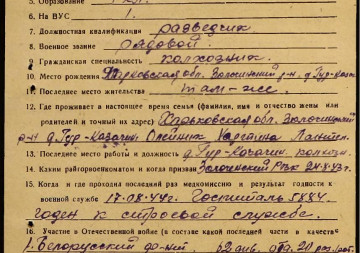 5. Образование
6. На ВУС 1.
7. Должностная квалификация разведчик
8. Военное звание рядовой
9. Гражданская специальность колхозник.
10. Место рождения Харьковская обл. Золочевский р-н, д. Тур-
11. Последнее место жительства там-же.
12. Где проживает в настоящее время семья (фамилия, имя и отчество жены или
родителей и точный их адрес) Харьковская обл. Золочевский
р-н д. Тур-Казачин. Олейник
13. Последнее место работы и должность д. Тур-Казачин.
14. Каким райгорвоенкоматом и когда призван Золочевский РВК 24.8.43г.
15. Когда и где проходил последний раз медкомиссию и результат годности к
военной службе 17-08.44г. Госпиталь 5884.
годен к строевой службе.
16. Участие в Отечественной войне (в составе какой последней части в качестве
1. Белорусский фр-нт. 62 див.